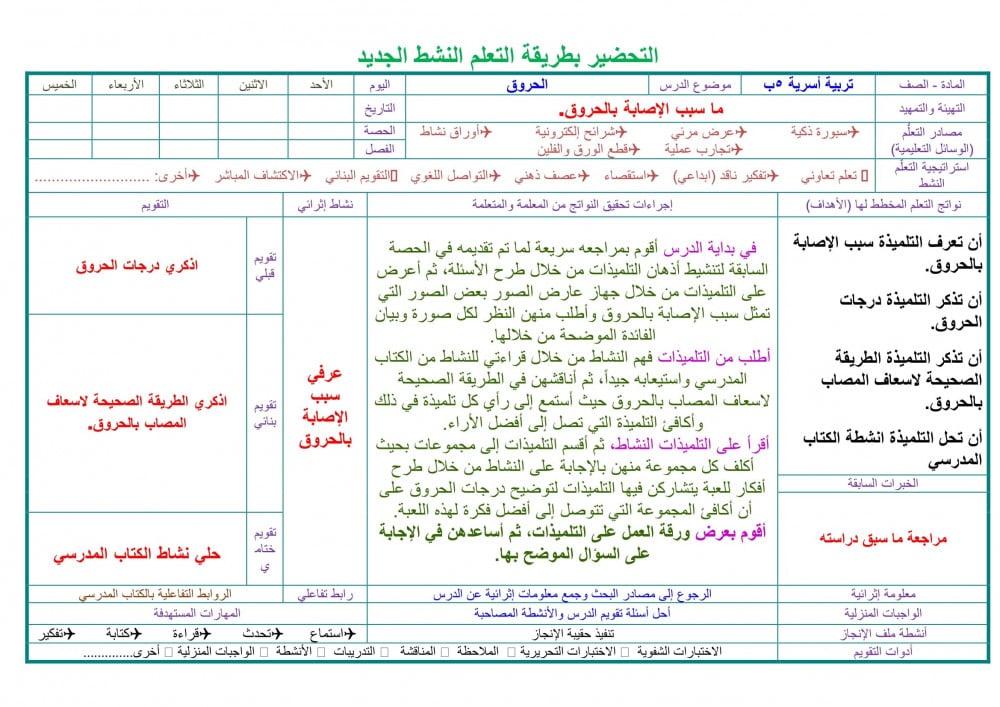 التحضير بطريقة التعلم النشط الجديد
المادة - الصف
تربية أسرية ٥ب
موضوع الدرس
الحروق
اليوم
الأحد
الاثنين
الثلاثاء
الأربعاء
الخميس
التهيئة والتمهيد
ما سبب الإصابة بالحروق.
التاريخ
مصادر التعلُّم
(الوسائل التعليمية)
✈سبورة ذكية ✈عرض مرئي ✈شرائح إلكترونية ✈أوراق نشاط
✈تجارب عملية ✈قطع الورق والفلين
الحصة
الفصل
استراتيجية التعلُّم
النشط
▯ تعلم تعاوني ✈تفكير ناقد (ابداعي) ✈استقصاء ✈عصف ذهني ✈التواصل اللغوي ▯التقويم البنائي ✈الاكتشاف المباشر ✈أخرى: ............................
نواتج التعلم المخطط لها (الأهداف)
إجراءات تحقيق النواتج من المعلمة والمتعلمة
نشاط إثرائي
التقويم
أن تعرف التلميذة سبب الإصابة
بالحروق.
أن تذكر التلميذة درجات
الحروق.
أن تذكر التلميذة الطريقة
الصحيحة لاسعاف المصاب
بالحروق.
أن تحل التلميذة انشطة الكتاب
المدرسي
الخبرات السابقة
مراجعة ما سبق دراسته
في بداية الدرس أقوم بمراجعه سريعة لما تم تقديمه في الحصة
السابقة لتنشيط أذهان التلميذات من خلال طرح الأسئلة، ثم أعرض
على التلميذات من خلال جهاز عارض الصور بعض الصور التي
تمثل سبب الإصابة بالحروق وأطلب منهن النظر لكل صورة وبيان
الفائدة الموضحة من خلالها.
أطلب من التلميذات فهم النشاط من خلال قراءتي للنشاط من الكتاب
المدرسي واستيعابه جيداً، ثم أناقشهن في الطريقة الصحيحة
لاسعاف المصاب بالحروق حيث أستمع إلى رأي كل تلميذة في ذلك
وأكافئ التلميذة التي تصل إلى أفضل الأراء.
أقرأ على التلميذات النشاط، ثم أقسم التلميذات إلى مجموعات بحيث
أكلف كل مجموعة منهن بالإجابة على النشاط من خلال طرح
أفكار للعبة يتشاركن فيها التلميذات لتوضيح درجات الحروق على
أن أكافئ المجموعة التي تتوصل إلى أفضل فكرة لهذه اللعبة.
أقوم بعرض ورقة العمل على التلميذات، ثم أساعدهن في الإجابة
على السؤال الموضح بها.
عرفي
سبب
الإصابة
بالحروق
تقويم
قبلي
اذكري درجات الحروق
تقويم
بنائي
اذكري الطريقة الصحيحة لاسعاف
المصاب بالحروق.
تقويم
ختام
ي
حلي نشاط الكتاب المدرسي
معلومة إثرائية
الرجوع إلى مصادر البحث وجمع معلومات إثرائية عن الدرس
رابط تفاعلي
الروابط التفاعلية بالكتاب المدرسي
الواجبات المنزلية
أحل أسئلة تقويم الدرس والأنشطة المصاحبة
المهارات المستهدفة
أنشطة ملف الإنجاز
تنفيذ حقيبة الإنجاز
✈استماع ✈تحدث ✈قراءة ✈كتابة ✈تفكير
أدوات التقويم
الاختبارات الشفوية ▯ الاختبارات التحريرية ▯ الملاحظة ▯ المناقشة ▯ التدريبات ▯ الأنشطة ▯ الواجبات المنزلية ▯ أخرى..............